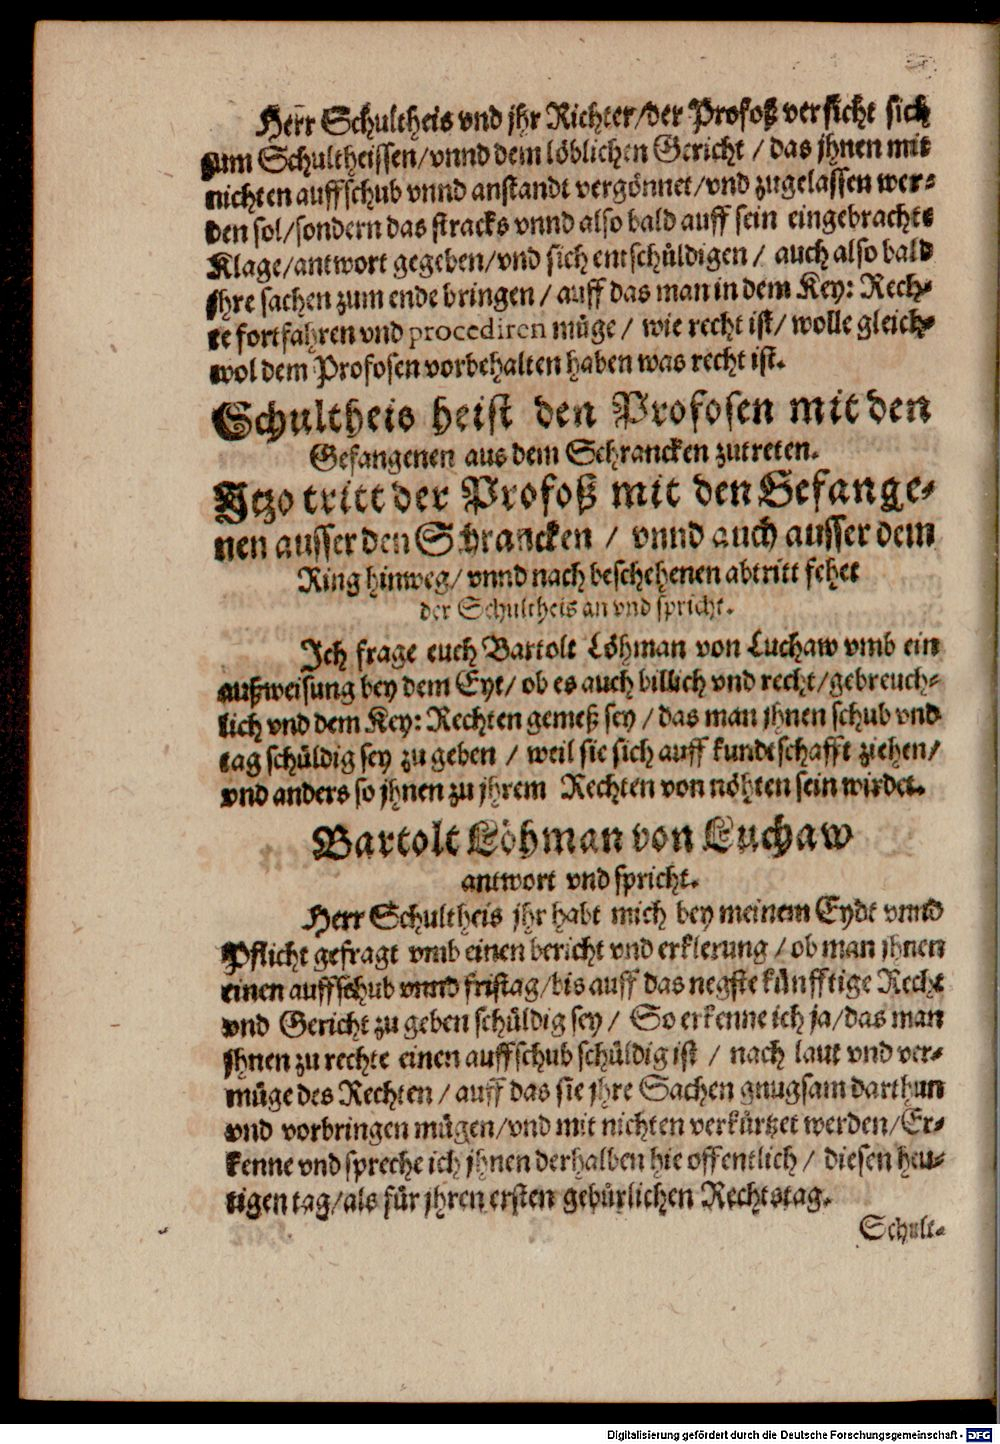 Herr Schultheis vnd jhr Richter/der Profoß versicht sich
zum Schultheissen/vnnd dem löblichen Gericht / das jhnen mit
nichten auffschub vnnd anstandt vergönnet/vnd zugelassen wer-
den sol/sondern das stracks vnnd also bald auff sein eingebrachte
Klage/antwort gegeben/vnd sich entschüldigen / auch also bald
jhre sachen zum ende bringen / auff das man in dem Key: Rech-
te fortfahren vnd procediren müge / wie recht ist/ wolle gleich-
wol dem Profosen vorbehalten haben was recht ist.
Schultheis heist den Profosen mit den
Gefangenen aus dem Schrancken zutreten.
Itzo tritt der Profoß mit den Gefange-
nen ausser den Schrancken / vnnd auch ausser dem
Ring hinweg/ vnnd nach beschehenen abtritt fehet
der Schultheis an vnd spricht.
Ich frage euch Bartolt Löhman von Luchaw vmb ein
außweisung bey dem Eyt/ ob es auch billich vnd recht/gebreuch-
lich vnd dem Key: Rechten gemeß sey / das man jhnen schub vnd
tag schüldig sey zu geben / weil sie sich auff kundtschafft ziehen/
vnd anders so jhnen zu jhrem Rechten von nöhten sein wirdet.
Bartolt Löhman von Luchaw
antwort vnd spricht.
Herr Schultheis jhr habt mich bey meinem Eydt vnnd
Pflicht gefragt vmb einen bericht vnd erklerung / ob man jhnen
einen auffschub vnnd fristag/bis auff das negste künfftige Recht
vnd Gericht zu geben schüldig sey / So erkenne ich ja/das man
jhnen zu rechte einen auffschub schüldig ist / nach laut vnd ver-
müge des Rechten / auff das sie jhre Sachen gnugsam darthun
vnd vorbringen mügen/vnd mit nichten verkürtzet werden/Er-
kenne vnd spreche ich jhnen derhalben hie offentlich / diesen heu-
tigen tag/als für jhren ersten gebürlichen Rechtstag.
Schult-
Digitalisierung gefördert durch die Deutsche Forschungsgemeinschaft - DFG